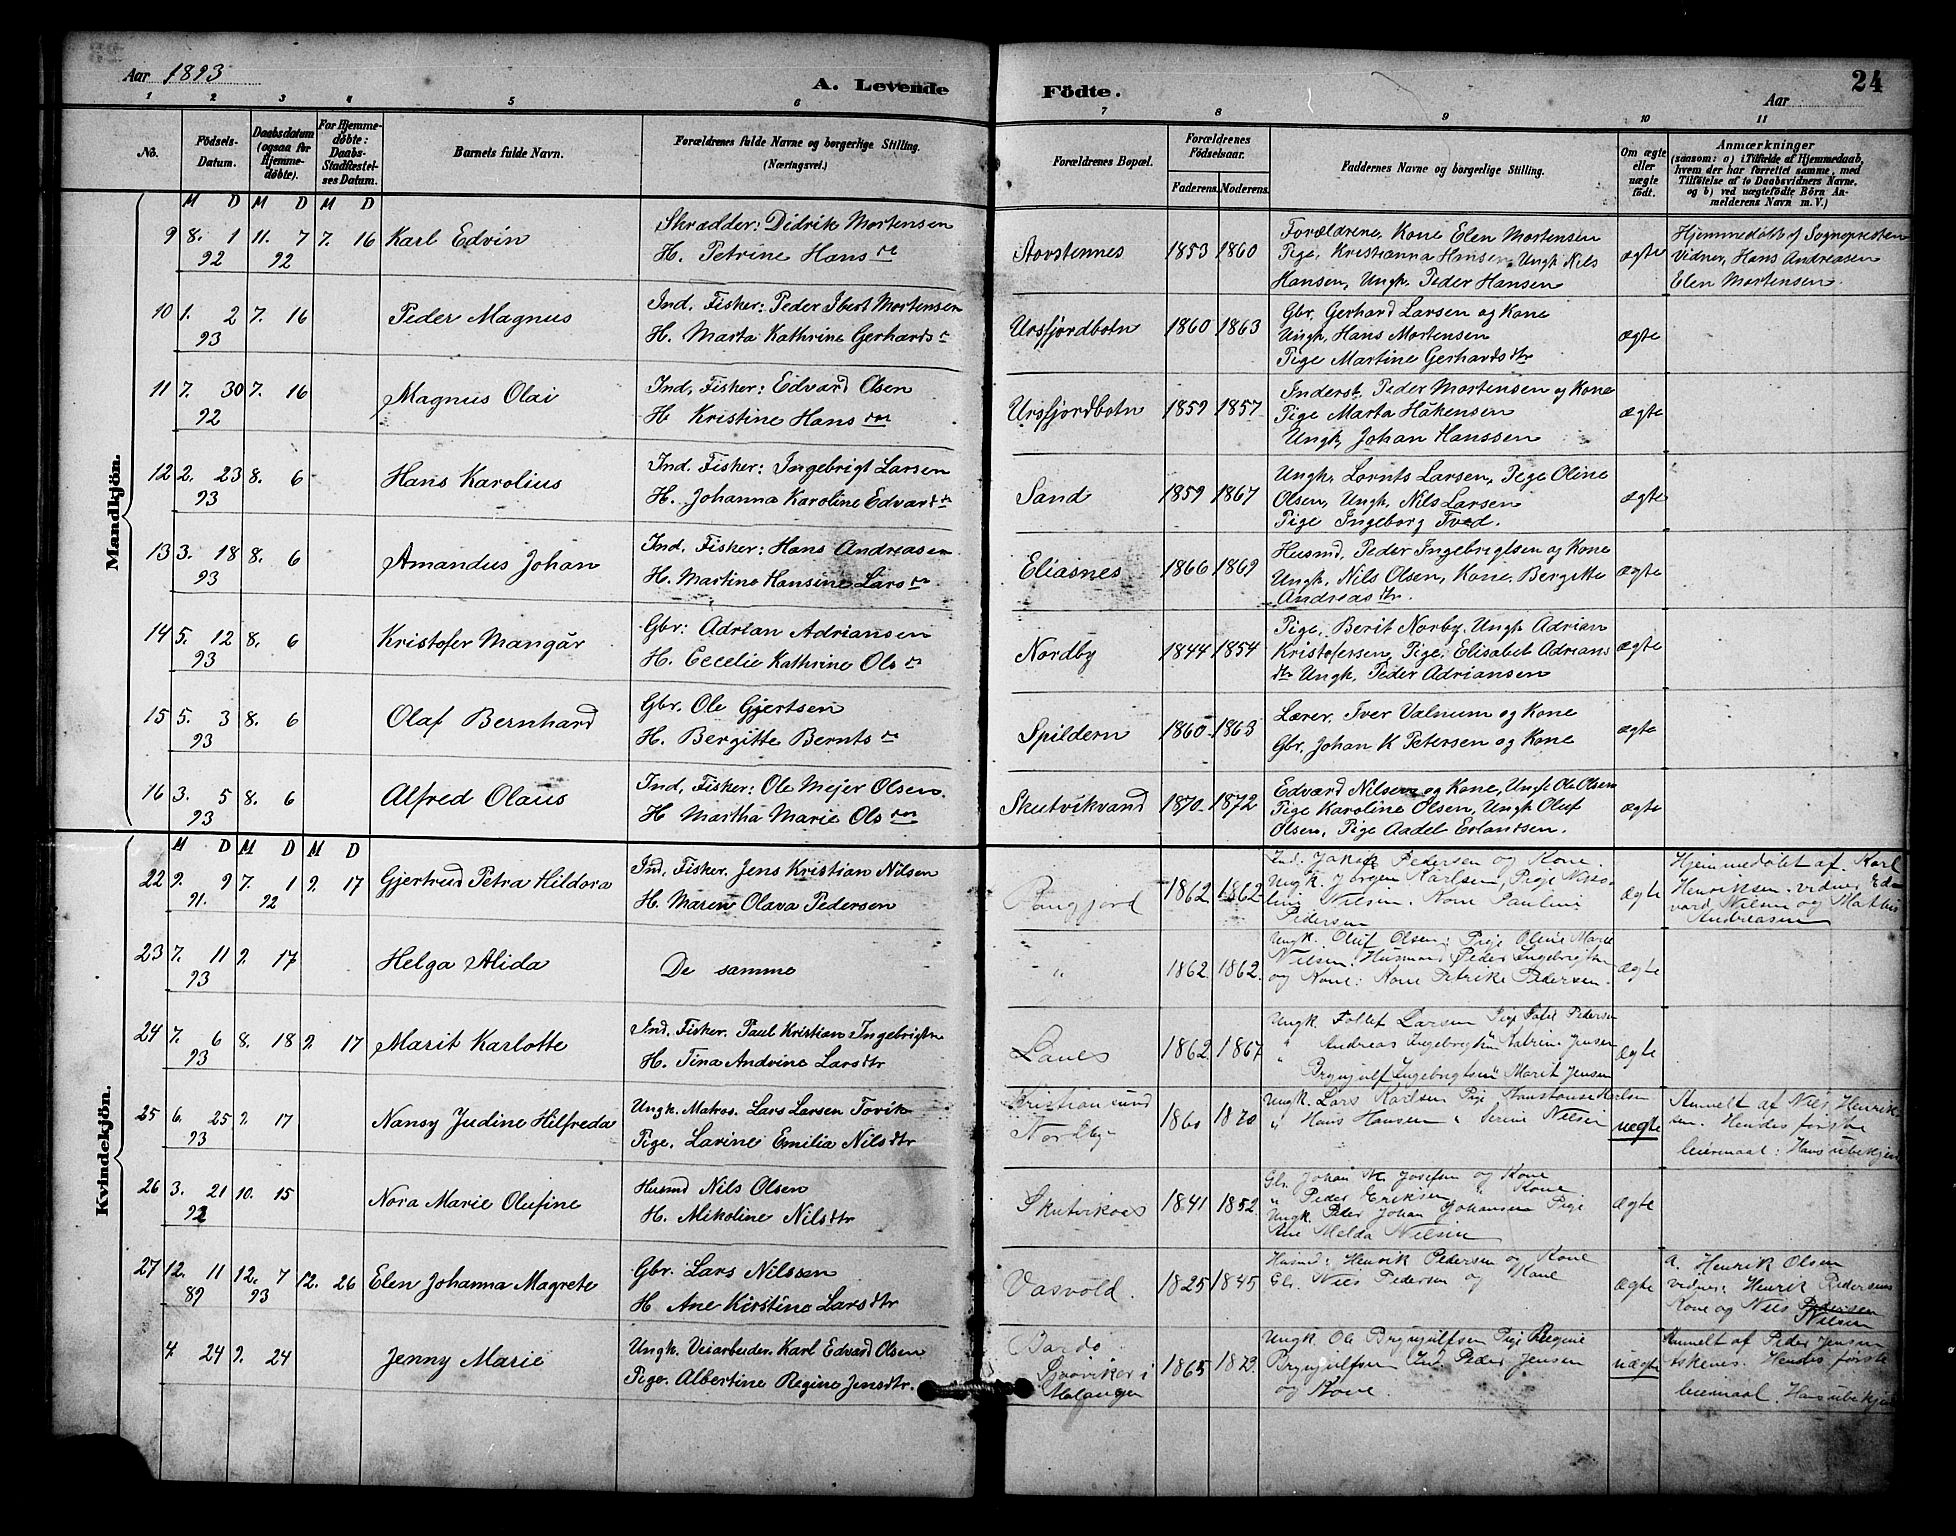 Aar 1893
A. Levende
Födte.
24
Aar
1 2 3 4 5 6 7 8 9 10 11
No.
Födsels-Datum.
Daabsdatum (ogsaa for Hjemmedöbte).
For Hjemmedöbte: Daabs-Stadfæstelses Datum.
Barnets fulde Navn.
Forældrenes fulde Navne og borgerlige Stilling. (Næringsvei.)
Forældrenes Bopæl.
Forældrenes Födselsaar.
Faderens. Moderens.
Faddernes Navne og borgerlige Stilling.
Om ægte eller uægte födt.
Anmærkninger
(saasom: a) i Tilfælde af Hjemmedaab, hvem der har forrettet samme, med Tilföielse af to Daabsvidners Navne, og b) ved uægtefödte Börn Anmelderens Navn m. V.)
Mandkjön.
M D M D M D
9 8. 1 92 11. 7 92 7. 16 Karl Edvin
Skrædder: Didrik Mortensen
H. Petrine Hans
1853 1860
Forældrene, Kone Elen Mortensen
Pige, Kristianna Hansen Ungk Nils
Hansen, Ungk. Peder Hansen
ægte
Hjemmedöbt af Sognepresten
Vidner, Hans Andreasen
Elen Mortensen.
10 1. 2 93 7. 16 Peder Magnus
Ind. Fisker: Peder Ibert Mortensen
H. Marta Kathrine Gerhards
Ursfjordbotn 1860 1863
Gbr, Gerhard Larsen og Kone
Ungk, Hans Mortensen
Pige Martine Gerhardsdtr
ægte
11 7. 30 92 7. 16 Magnus Olai
Ind, Fisker: Edvard Olsen
H Kristine Hans
Ursfjordbotn 1859 1857
Inderst, Peder Mortensen og Kone
Pige Marta Håkensen
Ungk, Johan Hanssen
ægte
12 2. 23 93 8. 6 Hans Karolius
Ind. Fisker: Ingebrigt Larsen
H. Johanna Karoline Edvards
Sand 1859 1867
Ungk, Lornts Larsen, Pige Oline
Olsen, Ungk, Nils Larsen
Pige Ingeborg
ægte
13 3. 18 93 8. 6 Amandus Johan
Ind. Fisker: Hans Andreasen
H. Martine Hansine Lars
Eliasnes 1866 1869
Husmd, Peder Ingebrigtsen og Kone
Ungk, Nils Olsen, Kone, Bergitte
Andreasdtr.
ægte
14 5. 12 93 8. 6 Kristofer Mangår
Gbr: Adrian Adriansen
H. Cecelie Kathrine Ols
Nordby 1844 1854
Pige, Berit Norby, Ungk Adrian
Kristofersen, Pige, Elisabet Adrians
dtr Ungk, Peder Adriansen
ægte
15 5. 3 93 8. 6 Olaf Bernhard
Gbr. Ole Gjertsen
H. Bergitte Bernts
Spildern 1860 1863
Lærer, Iver Valnum og Kone
Gbr, Johan K Petersen og Kone
ægte
16 3. 5 93 8. 6 Alfred Olaus
Ind, Fisker: Ole Mejer Olsen.
H Martha Marie Ols
Skutvikvand 1870 1872
Edvard Nilsen og Kone, Ungk Ole Olsen
Pige Karoline Olsen, Ungk Oluf
Olsen, Pige Aadel Erlandsen.
ægte
Kvindekjön.
M D M D M D
22 9. 9 91. 7. 1 92 9. 17 Gjertrud Petra Hildora
Ind, Fisker. Jens Kristian Nilsen
H. Maren Olava Pedersen
1862 1862
Ind. Jakob Pedersen og Kone.
Ungk. Jörgen Karlsen, Pige Niko-
line Nilsen. Kone Pauline
Pedersen
ægte
Hjemmedöbt af Karl
Henriksen. vidner Ed
vard Nilsen og Mathis
Andreasen
23 7. 11 93 9. 17 Helga Alida
De samme
" 1862 1862
Ungk. Oluf Olsen; Pige Oline Marie
Nilsen. Husmand Peder Ingebrigtsn
og Kone: Kone Petrike Pedersen.
ægte
24 7. 6 93 8. 18 9. 17 Marit Karlotte
Ind, Fisker. Paul Kristian Ingebrigtn
H. Tina Andrine Larsdtr
Lanes 1862 1867
Ungk. Tollef Larsen Pige Pedersen
" Andreas Ingebrigtsen " Katrine Jensen
" Brynjulf Ingebrigtsen " Marit Jensen
ægte
25 6. 25 93 9. 17 Nansy Judine Hilfreda
Ungk. Matros. Lars Larsen Torvik
Pige. Lavine Emilia Nilsdtr
Kristiansund
Nordby 1860 1870
Ungk. Lars Karlsen Pige Konstanse Karlsen
" Hans Hansen " Serine Nilsen
uægte
Anmelt af Nils Henrik
sen. Hendes förste
leiermaal: Hans ubekjent
26 3. 21 92 10. 15 Nora Marie Olufine
Husmd Nils Olsen
H. Mikoline Nilsdtr
1841 1852
Gbr. Johan M. Josefsen og Kone
" Peder Eriksen " Kone
Ungk. Peder Johan Johansen Pige
Ane Melda Nilsen
ægte
27 12. 11 89 12. 7 93 12. 26 Elen Johanna Magrete
Gbr. Lars Nilssen
H Ane Kirstine Larsdtr
Vasvold. 1825 1845
Husmd: Henrik Pedersen og Kone
Gbr. Nils Pedersen og Kone
ægte
a. Henrik Olsen
vidner: Henrik Pedersens
Kone og Nils Pedersen
Nilsen
4. 24 9. 24 Jenny Marie
Ungk. Veiarbeider. Karl Edvard Olsen
Pige. Albertine Regine Jensdtr.
Bardo
i
Malangen
1865
Ungk Ole Brynjulfsen Pige Regine
Brynjulfsen Ind. Peder Jensen
og Kone.
uægte
Anmelt af Peder Jensen
Askenes. Hendes förste
leiermaal. Hans ubekjent